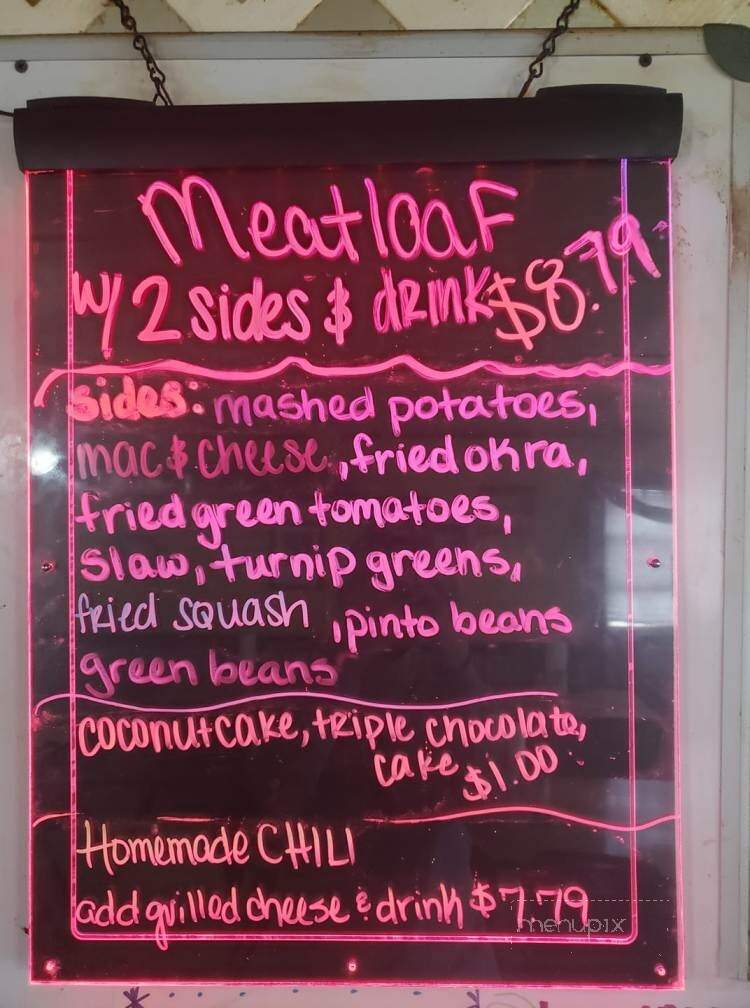 Meatloaf
w/ 2 sides & drink $8.79
sides: mashed potatoes,
mac & cheese, fried okra,
fried green tomatoes,
slaw, turnip greens,
fried squash, pinto beans
green beans
coconut cake, triple chocolate,
cake $1.00
Homemade CHILI
add grilled cheese & drink $7.79
menupix